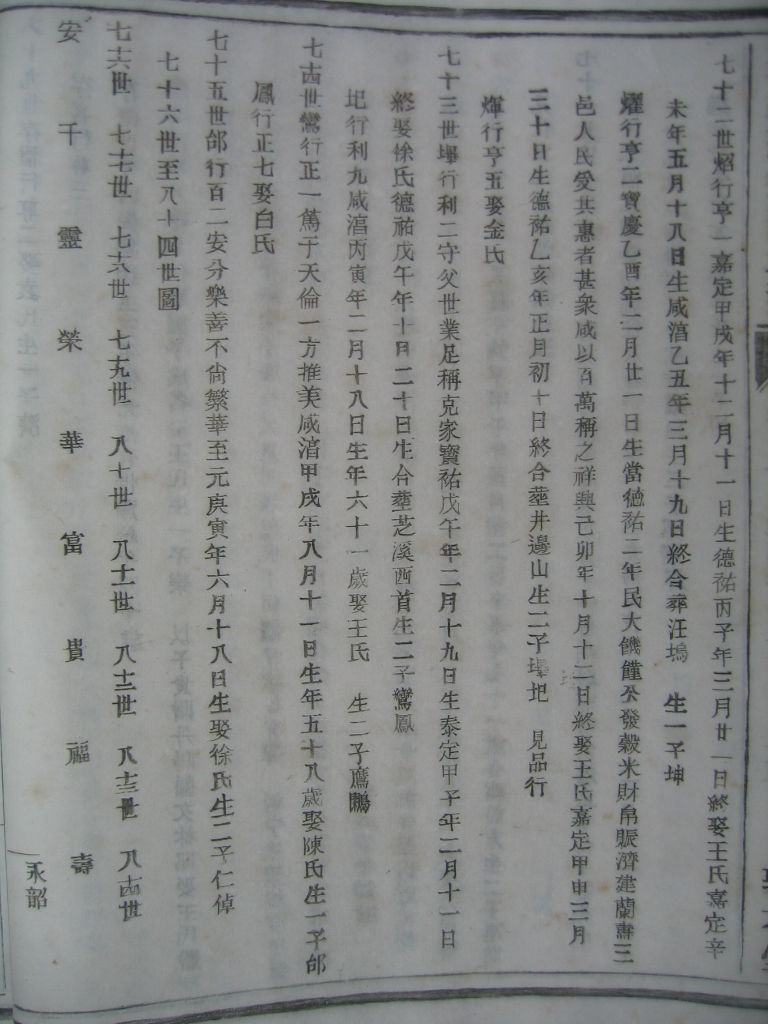 七十二世炤行亨一嘉定甲戌年十二月十一日生德祐丙子年三月廿一日終娶王氏嘉定辛
未年五月十八日生咸淳乙丑年三月十九日終合葬汪塢　生一子坤
燿行亨二寶慶乙酉年二月廿一日生當德祐二年民大饑饉公發穀米財帛賑濟建蘭壽三
邑人民受其惠者甚衆咸以百萬稱之祥興己卯年十月十二日終娶王氏嘉定甲申三月
三十日生德祐乙亥年正月初十日終合塟井邊山生二子墠圯　見品行
煇行亨五娶金氏
七十三世墠行利二守父世業足稱克家寶祐戊午年二月十九日生泰定甲子年二月十一日
終娶徐氏德祐戊午年十日二十日生合塟芝溪西首生二子鸞鳳
圯行利九咸淳丙寅年二月十八日生年六十一歲娶王氏　生二子鷹鵰
七十四世鸞行正一篤于天倫一方推美咸淳甲戌年八月十一日生年五十八歲娶陳氏生一子邰
鳳行正七娶白氏
七十五世邰行百二安分樂善不尙繁華至元庚寅年六月十八日生娶徐氏生二子仁倬
七十六世至八十四世圖
七十六世　七十七世　七十八世　七十九世　八十世　八十一世　八十二世　八十三世　八十四世
安　千　靈　榮　華　富　貴　福　壽
永韶